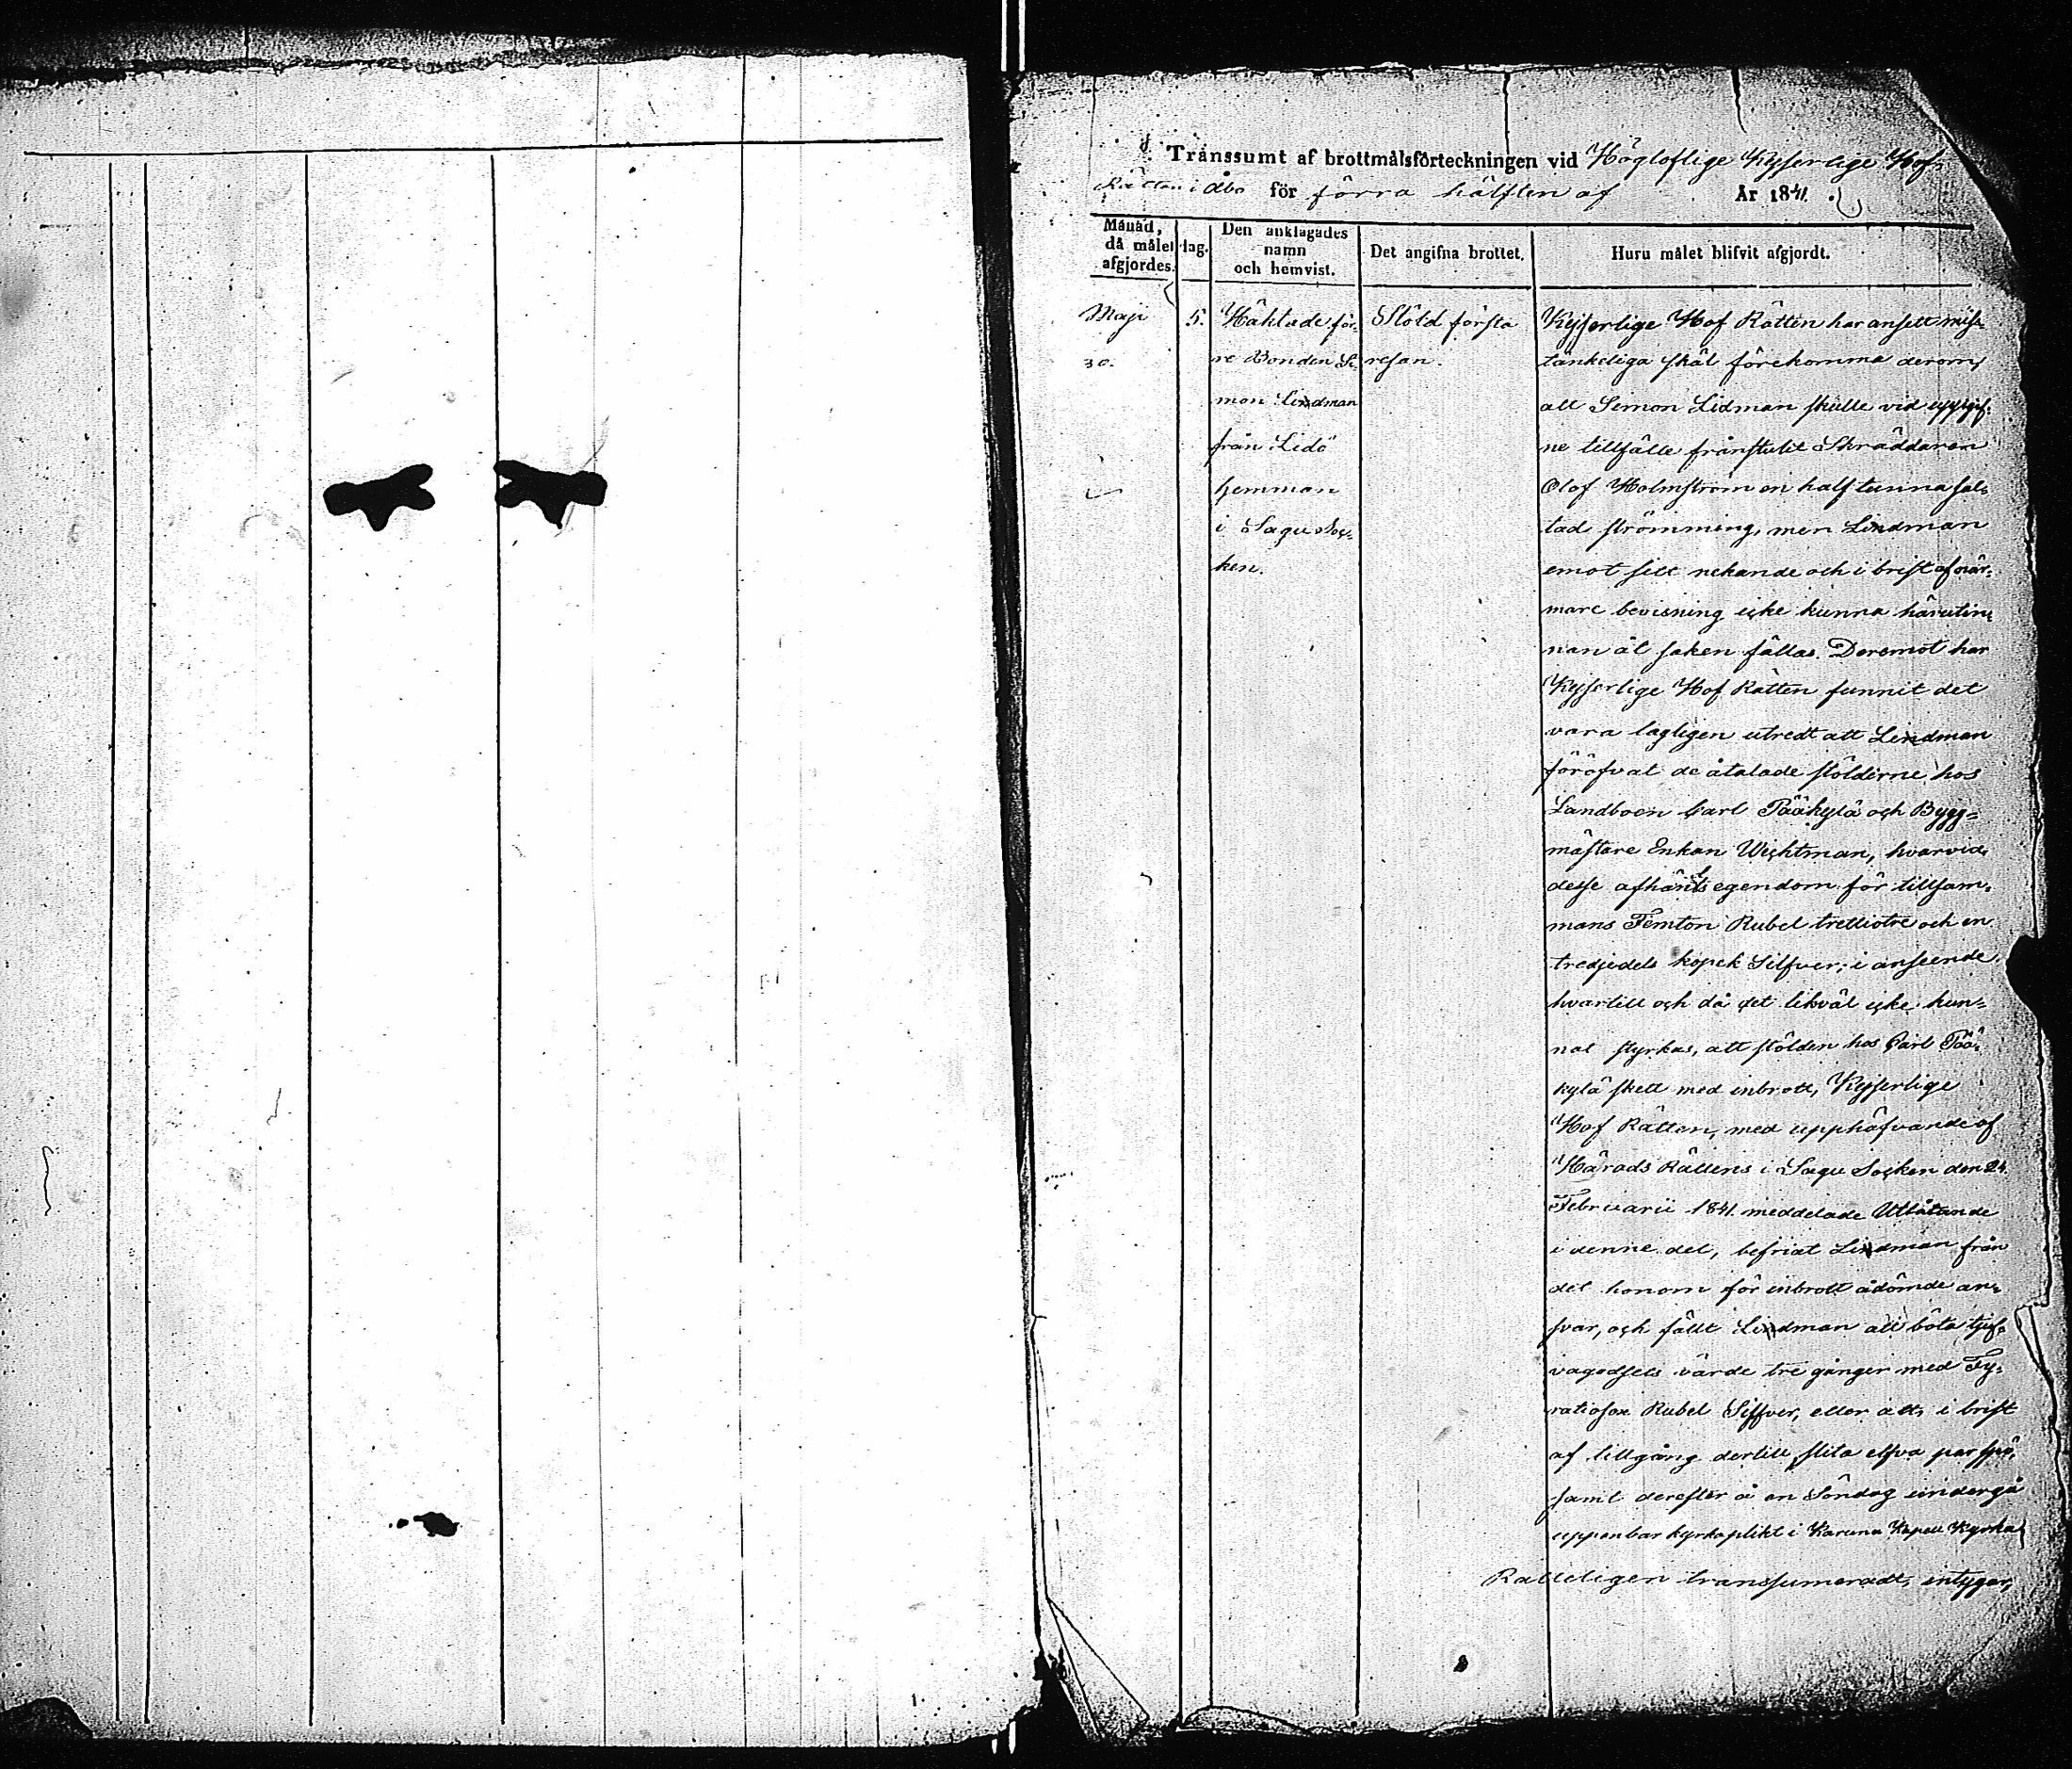 Transsumt af brottmålsförteckningen vid Högloflige Kejserlige Hof-
Rätten i Åbo för förra hälften af År 1841.
Månad, då målet afgjordes.
Dag.
Den anklagades namn och hemvist.
Det angifna brottet.
Huru målet blifvit afgjordt.
Maji
30.
5.
Häktade för-
re Bonden Si-
mon Lindman
från Lidö
hemman
i Sagu Soc-
ken.
Stöld första
resan.
Kejserlige Hof Rätten har ansett miss-
tänkeliga skäl förekomma derom,
att Simon Lidman skulle vid uppgif-
ne tillfälle frånstulit Skräddaren
Olof Holmström en half tunna sal-
tad strömming, men Lindman
emot sitt nekande och i brist af när-
mare bevisning icke kunna härutin-
nan åt saken fällas. Deremot har
Kejserlige Hof Rätten funnit det
vara lagligen utredt att Lindman
föröfvat de åtalade stölderne hos
Landboen Carl Pääkylä och Bygg-
mästare Enkan Wichtman, hvarvid
desse afhändts egendom för tillsam-
mans Femton Rubel trettiotre och en
tredjedels kopek Silfver; i anseende
hvartill och då det likväl icke kun-
nat styrkas, att stölden hos Carl Pää-
kylä skett med inbrott, Kejserlige
Hof Rätten, med upphäfvande af
Härads Rättens i Sagu Socken den 24
Februarii 1841 meddelade Utlåtande
i denne del, befriat Lindman från
det honom för inbrott ådömde an-
svar, och fällt Lindman att böta tjuf-
vagodsets värde tre gånger med Fy-
ratiosex Rubel Silfver, eller att, i brist
af tillgång dertill, slita elfva par spö,
samt derefter å en Söndag undergå
uppenbar kyrkoplikt i Karuna Kapell Kyrka
Rätteligen transsumeradt, intygar,